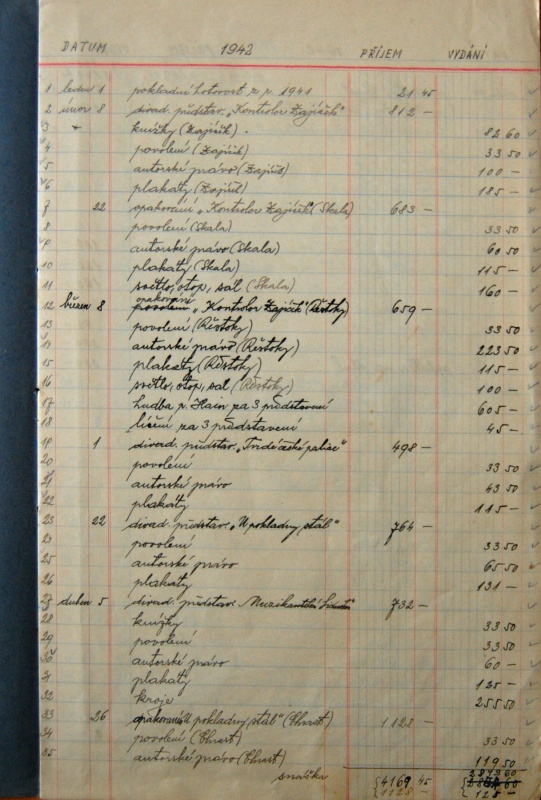 DATUM 1942 PŘÍJEM VYDÁNÍ
1 leden 1 pokladní hotovost z r. 1941 21 45
2 únor 8 divad. představ. „Kontrolor Zajíček" 812 —
3 knížky (Zajíček). 82 60
4 povolení (Zajíček) 33 50
5 autorské právo (Zajíček) 100 —
6 plakáty (Zajíček) 185 —
7 22 opakování „Kontrolor Zajíček" (Skala) 683 —
8 povolení (Skala) 33 50
9 autorské právo (Skala) 60 50
10 plakáty (Skala) 115 —
11 světlo, otop, sál (Skala) 160 —
opakování
12 březen 8 povolení „Kontrolor Zajíček" (Řestoky) 659 —
13 povolení (Řestoky) 33 50
14 autorské právo (Řestoky) 223 50
15 plakáty (Řestoky) 115 —
16 světlo, otop, sál (Řestoky) 100 —
17 hudba p. Hain za 3 představení 605 —
18 líčení za 3 představení 45 —
19 1 divad. představ. české palice" 498 —
20 povolení 33 50
21 autorské právo 43 50
22 plakáty 115 —
23 22 divad. představ. „U pokladny stál" 764 —
23 povolení 33 50
25 autorské právo 65 50
26 plakáty 131 —
27 duben 5 divad. představ. Muzikantská 732 —
28 knížky 33 50
29 povolení 33 50
30 autorské právo 60 —
31 plakáty 125 —
32 kroje 255 50
33 26 opakování U pokladny stál" (Chrast) 1128 —
34 povolení (Chrast) 33 50
35 autorské právo (Chrast) 119 50
snáška 4169 45
1128 — 128 —